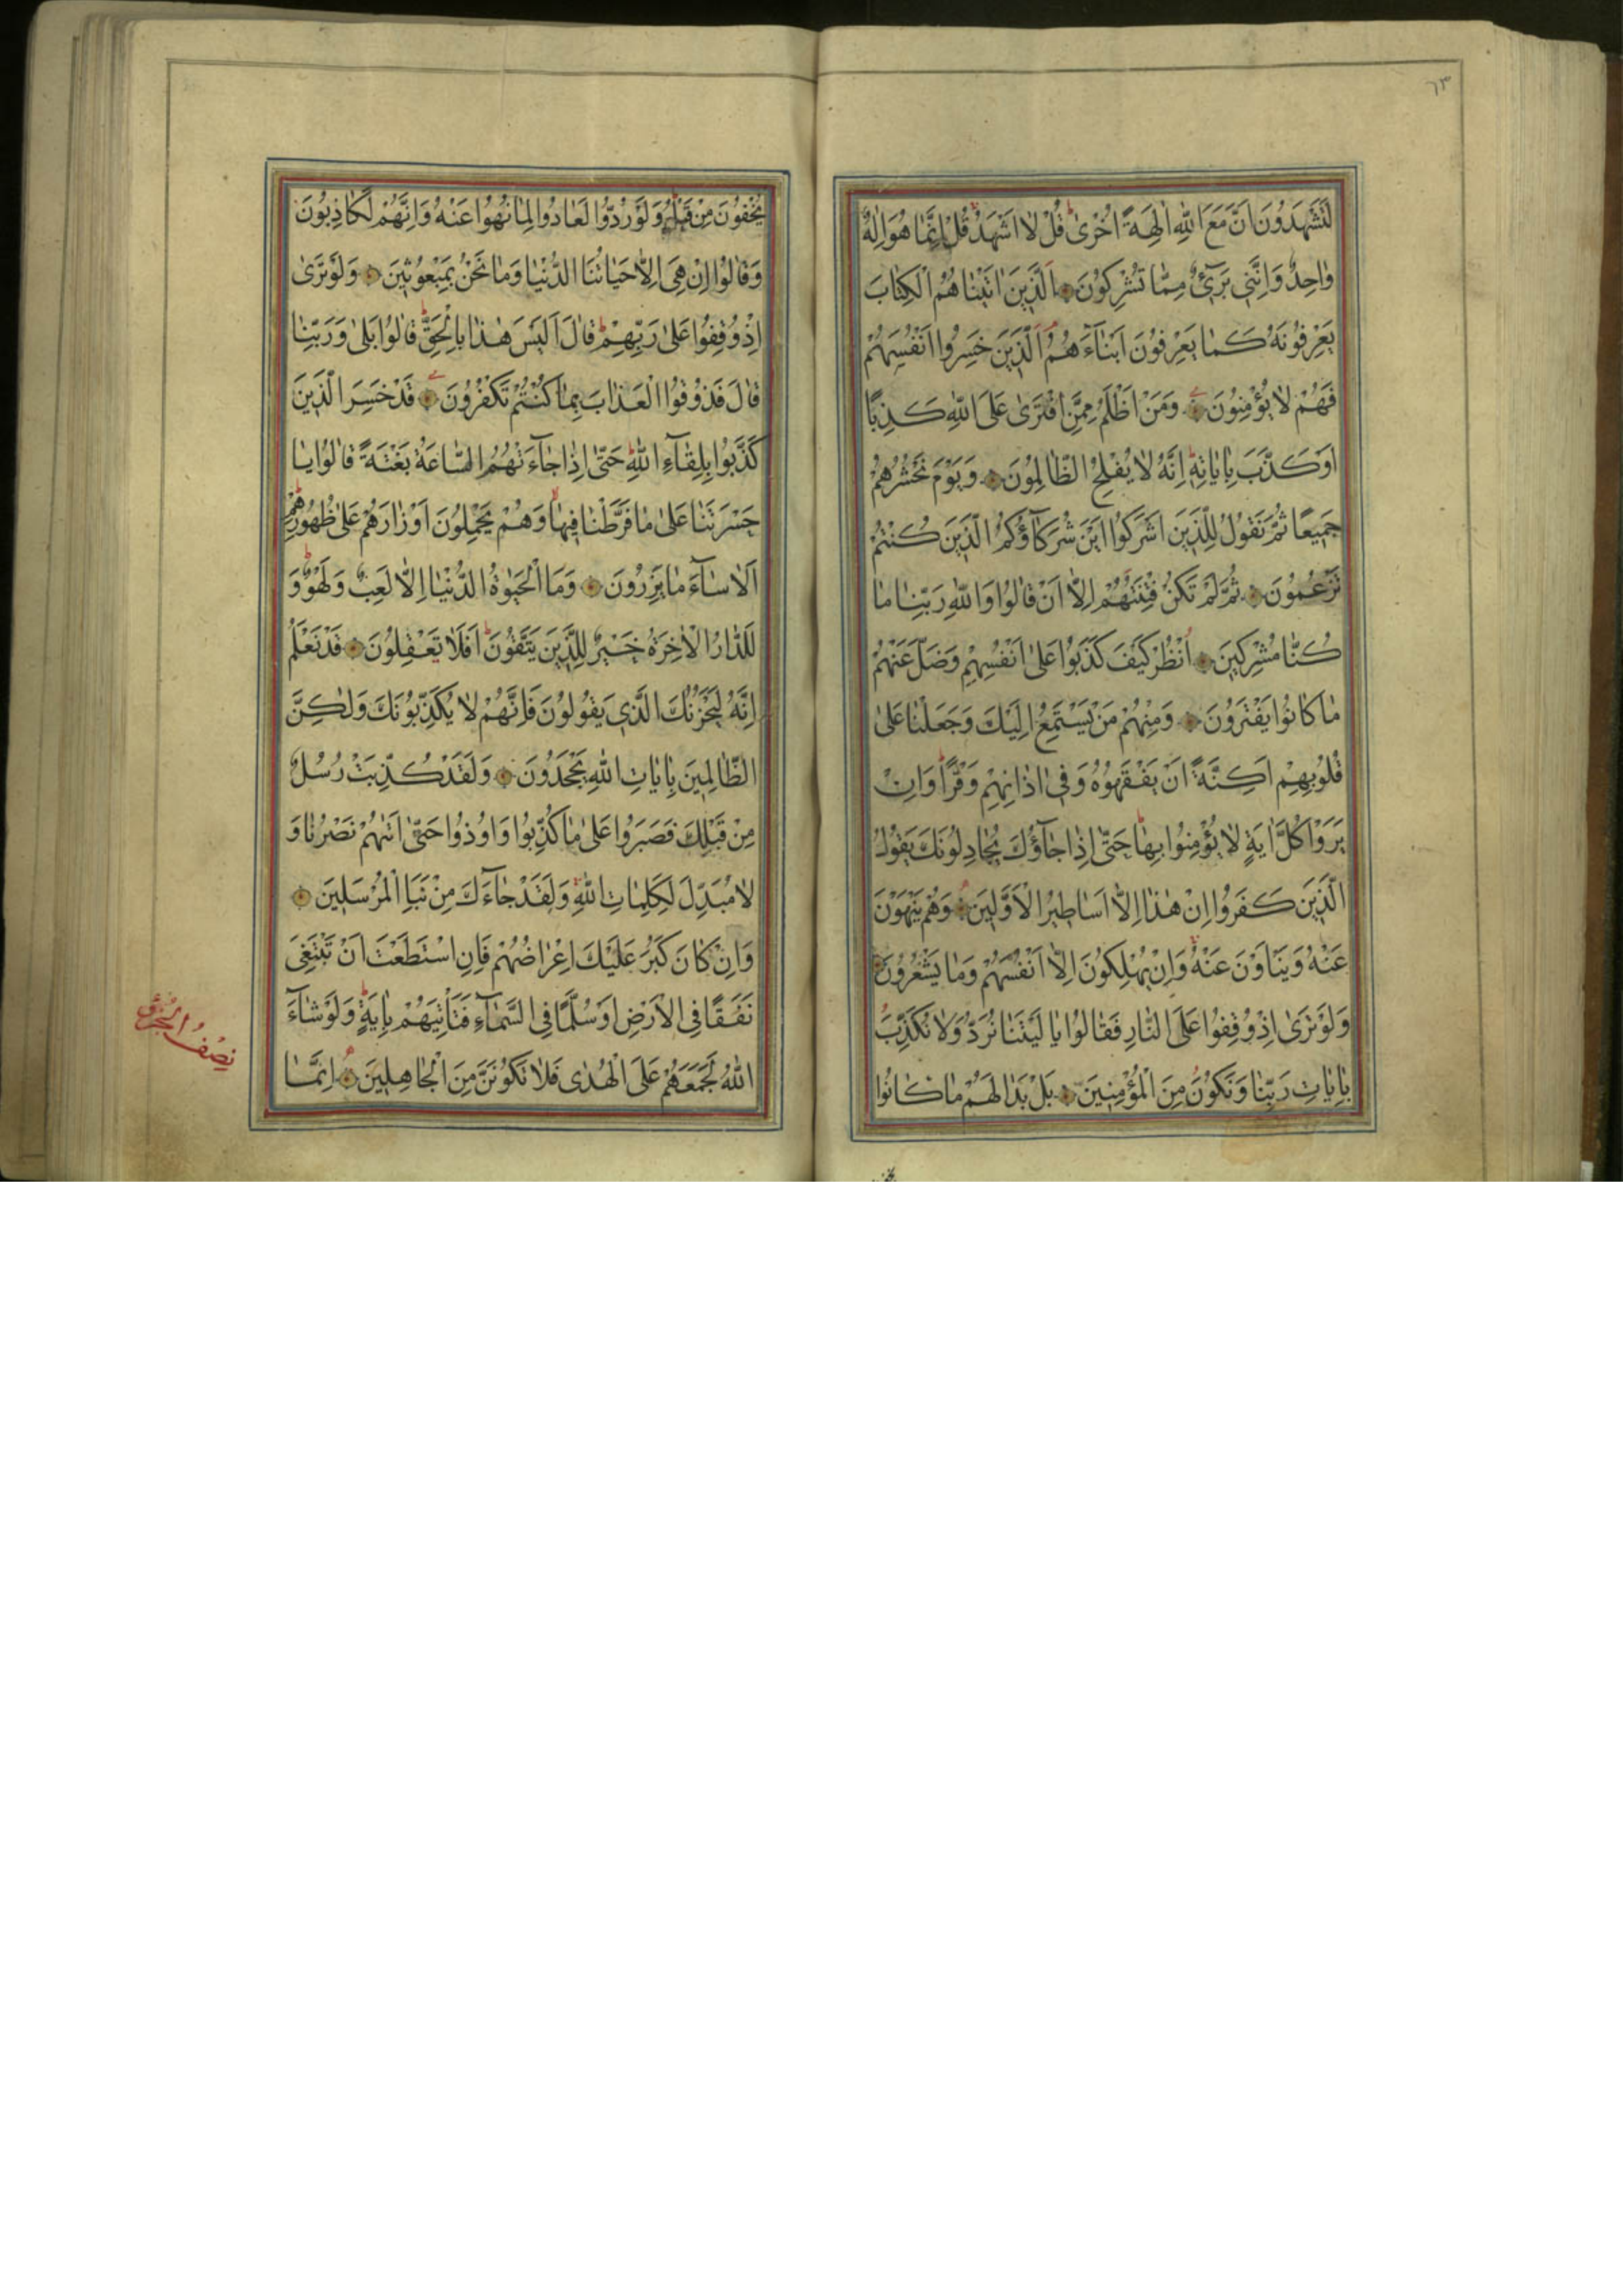 ٦٣
لَتَشْهَدُونَ اَنَّ مَعَ اللّٰهِ اٰلِهَةً اُخْرٰى قُلْ لَا اَشْهَدُ قُلْ اِنَّمَا هُوَ اِلٰهٌ
وَاحِدٌ وَاِنَّنِي بَرِيٓءٌ مِمَّا تُشْرِكُونَ اَلَّذِينَ اٰتَيْنَاهُمُ الْكِتَابَ
يَعْرِفُونَهُ كَمَا يَعْرِفُونَ اَبْنَآءَهُمُ اَلَّذِينَ خَسِرُوا اَنْفُسَهُمْ
فَهُمْ لَا يُؤْمِنُونَ وَمَنْ اَظْلَمُ مِمَّنِ افْتَرٰى عَلَى اللّٰهِ كَذِبًا
اَوْ كَذَّبَ بِاٰيَاتِهِ اِنَّهُ لَا يُفْلِحُ الظَّالِمُونَ وَيَوْمَ نَحْشُرُهُمْ
جَمِيعًا ثُمَّ نَقُولُ لِلَّذِينَ اَشْرَكُوا اَيْنَ شُرَكَآؤُكُمُ الَّذِينَ كُنْتُمْ
تَزْعُمُونَ ثُمَّ لَمْ تَكُنْ فِتْنَتُهُمْ اِلَّا اَنْ قَالُوا وَاللّٰهِ رَبِّنَا مَا
كُنَّا مُشْرِكِينَ اُنْظُرْ كَيْفَ كَذَبُوا عَلٰى اَنْفُسِهِمْ وَضَلَّ عَنْهُمْ
مَا كَانُوا يَفْتَرُونَ وَمِنْهُمْ مَنْ يَسْتَمِعُ اِلَيْكَ وَجَعَلْنَا عَلٰى
قُلُوبِهِمْ اَكِنَّةً اَنْ يَفْقَهُوهُ وَفِي اٰذَانِهِمْ وَقْرًا وَاِنْ
يَرَوْا كُلَّ اٰيَةٍ لَا يُؤْمِنُوا بِهَا حَتّٰى اِذَا جَآؤُكَ يُجَادِلُونَكَ يَقُولُ
الَّذِينَ كَفَرُوا اِنْ هٰذَا اِلَّا اَسَاطِيرُ الْاَوَّلِينَ وَهُمْ يَنْهَوْنَ
عَنْهُ وَيَنْاَوْنَ عَنْهُ وَاِنْ يُهْلِكُونَ اِلَّا اَنْفُسَهُمْ وَمَا يَشْعُرُونَ
وَلَوْ تَرٰى اِذْ وُقِفُوا عَلَى النَّارِ فَقَالُوا يَا لَيْتَنَا نُرَدُّ وَلَا نُكَذِّبَ
بِاٰيَاتِ رَبِّنَا وَنَكُونَ مِنَ الْمُؤْمِنِينَ بَلْ بَدَا لَهُمْ مَا كَانُوا
يُخْفُونَ مِنْ قَبْلُ وَلَوْ رُدُّوا لَعَادُوا لِمَا نُهُوا عَنْهُ وَاِنَّهُمْ لَكَاذِبُونَ
وَقَالُوا اِنْ هِيَ اِلَّا حَيَاتُنَا الدُّنْيَا وَمَا نَحْنُ بِمَبْعُوثِينَ وَلَوْ تَرٰى
اِذْ وُقِفُوا عَلٰى رَبِّهِمْ قَالَ اَلَيْسَ هٰذَا بِالْحَقِّ قَالُوا بَلٰى وَرَبِّنَا
قَالَ فَذُوقُوا الْعَذَابَ بِمَا كُنْتُمْ تَكْفُرُونَ قَدْ خَسِرَ الَّذِينَ
كَذَّبُوا بِلِقَآءِ اللّٰهِ حَتّٰى اِذَا جَآءَتْهُمُ السَّاعَةُ بَغْتَةً قَالُوا يَا
حَسْرَتَنَا عَلٰى مَا فَرَّطْنَا فِيهَا وَهُمْ يَحْمِلُونَ اَوْزَارَهُمْ عَلٰى ظُهُورِهِمْ
اَلَا سَآءَ مَا يَزِرُونَ وَمَا الْحَيٰوةُ الدُّنْيَا اِلَّا لَعِبٌ وَلَهْوٌ وَ
لَلدَّارُ الْاٰخِرَةُ خَيْرٌ لِلَّذِينَ يَتَّقُونَ اَفَلَا تَعْقِلُونَ قَدْ نَعْلَمُ
اِنَّهُ لَيَحْزُنُكَ الَّذِي يَقُولُونَ فَاِنَّهُمْ لَا يُكَذِّبُونَكَ وَلٰكِنَّ
الظَّالِمِينَ بِاٰيَاتِ اللّٰهِ يَجْحَدُونَ وَلَقَدْ كُذِّبَتْ رُسُلٌ
مِنْ قَبْلِكَ فَصَبَرُوا عَلٰى مَا كُذِّبُوا وَاُوذُوا حَتّٰى اَتٰيهُمْ نَصْرُنَا وَ
لَا مُبَدِّلَ لِكَلِمَاتِ اللّٰهِ وَلَقَدْ جَآءَكَ مِنْ نَبَاِ الْمُرْسَلِينَ
وَاِنْ كَانَ كَبُرَ عَلَيْكَ اِعْرَاضُهُمْ فَاِنِ اسْتَطَعْتَ اَنْ تَبْتَغِيَ
نَفَقًا فِي الْاَرْضِ اَوْ سُلَّمًا فِي السَّمَآءِ فَتَاْتِيَهُمْ بِاٰيَةٍ وَلَوْ شَآءَ
اللّٰهُ لَجَمَعَهُمْ عَلَى الْهُدٰى فَلَا تَكُونَنَّ مِنَ الْجَاهِلِينَ اِنَّمَا
نِصْفُ الْجُزْءِ